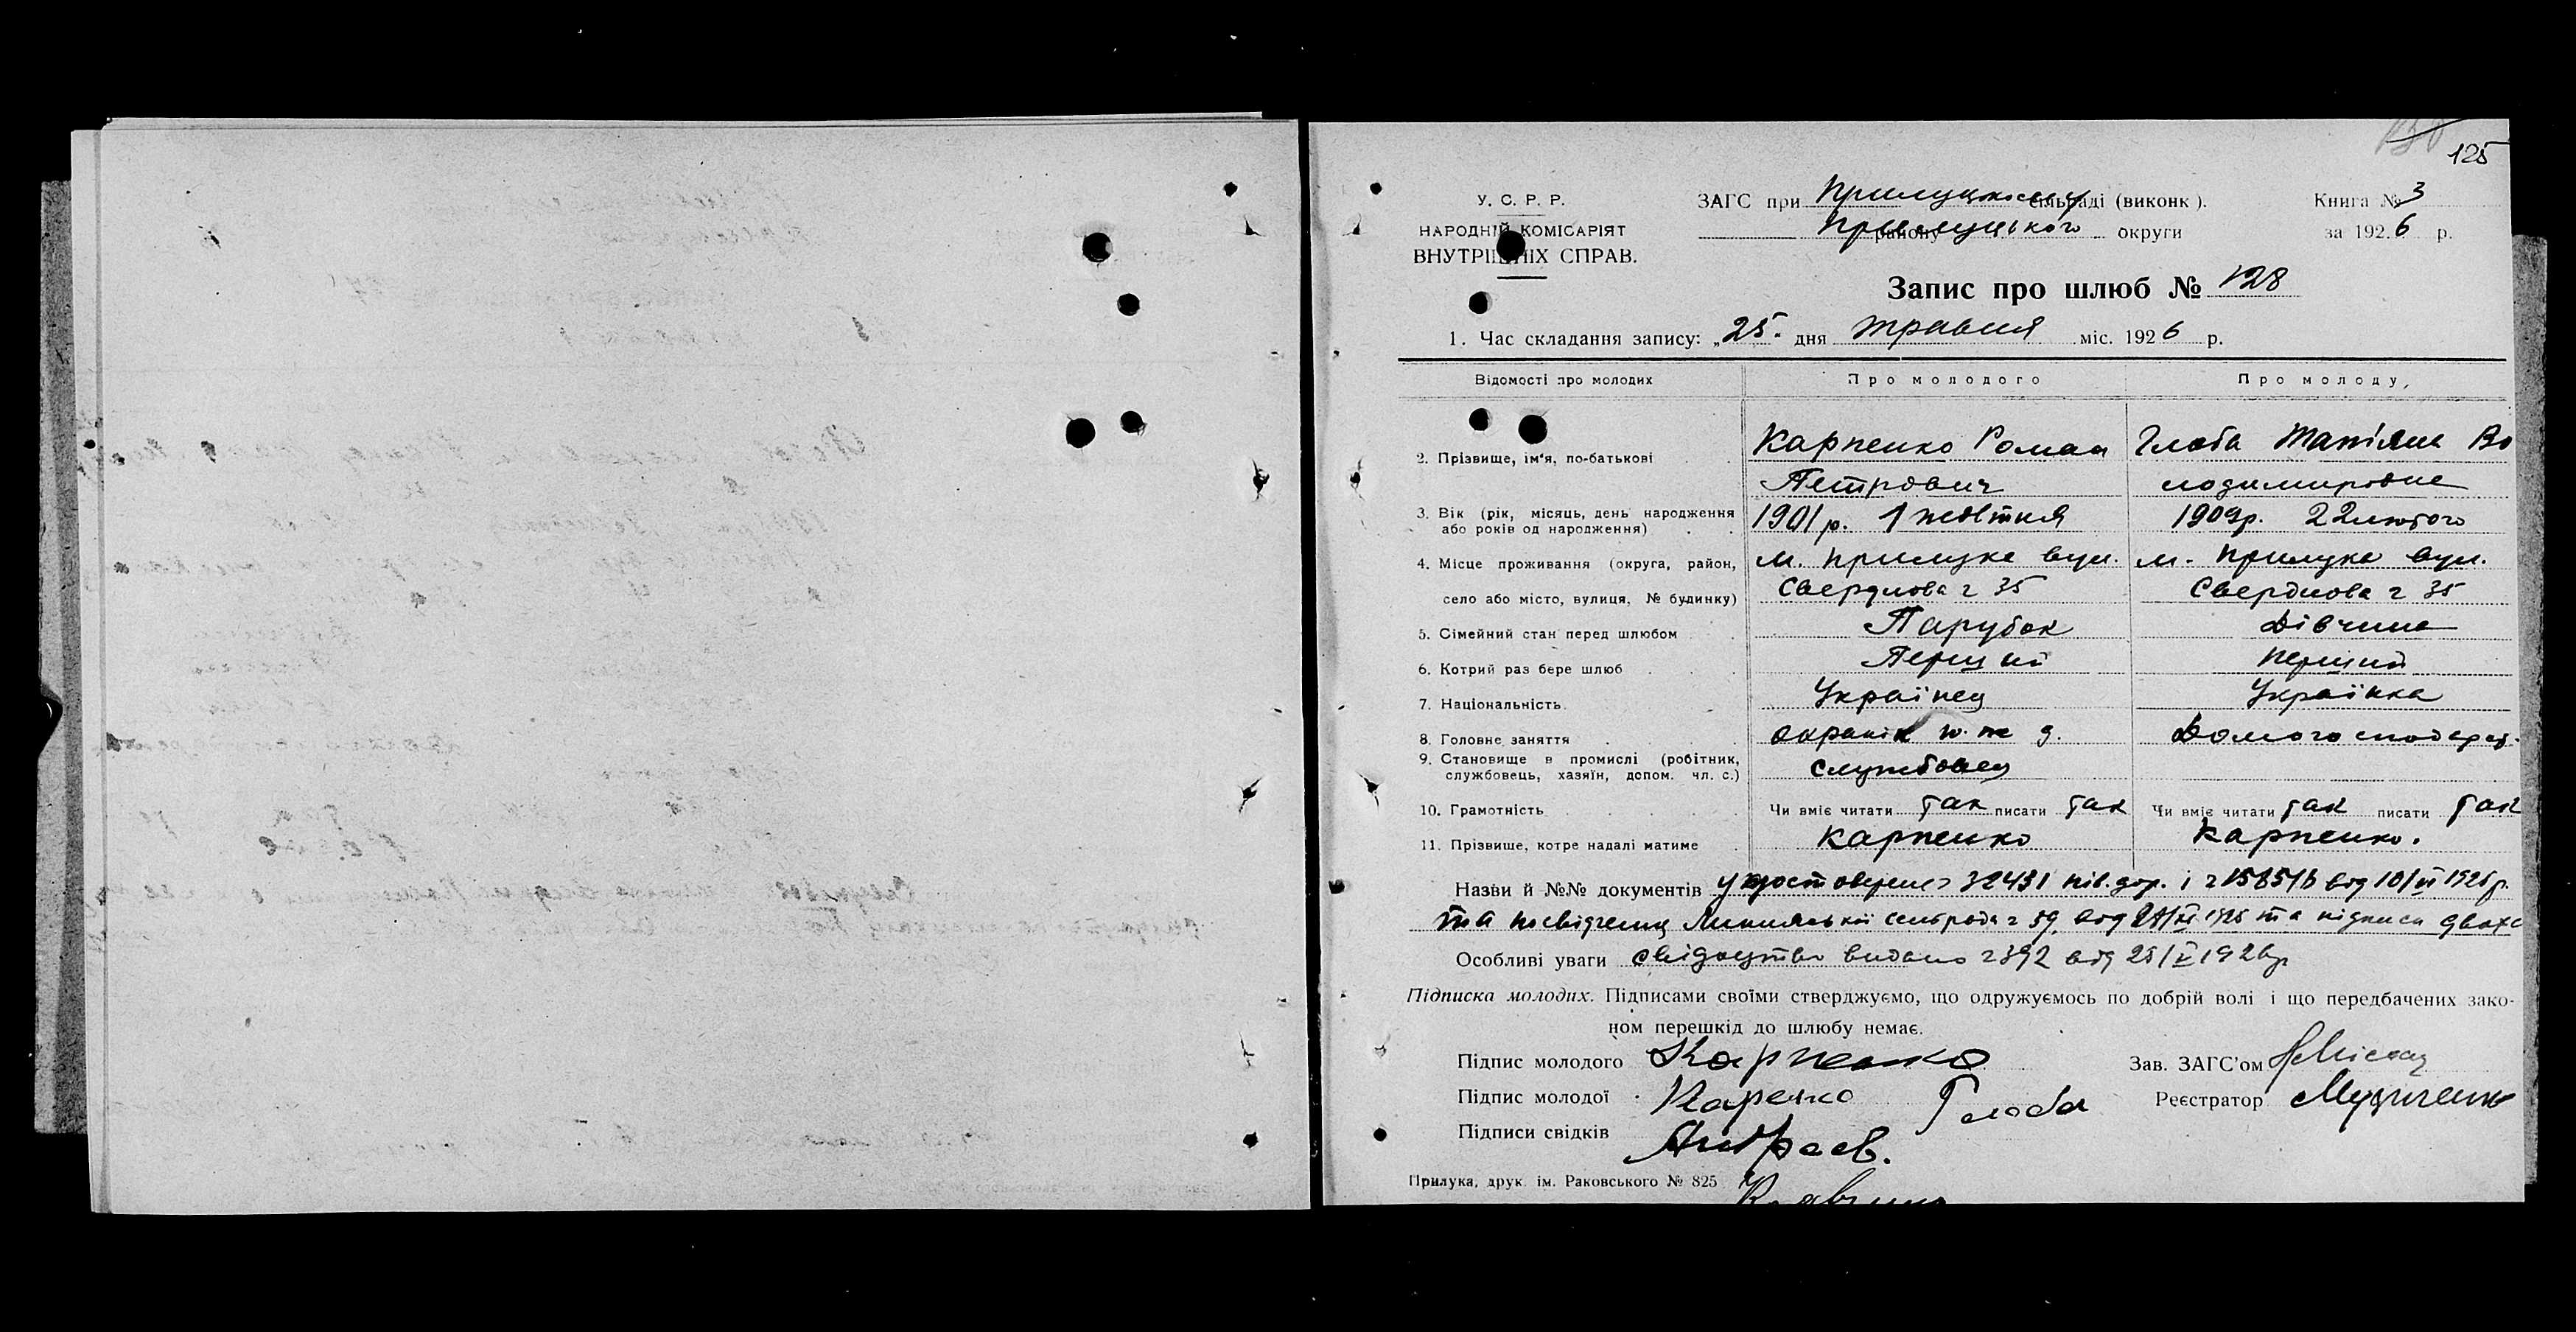 125
У. С. Р. Р.
НАРОДНІЙ КОМІСАРІЯТ
ВНУТРІШНІХ СПРАВ.
ЗАГС при сільраді (виконк).
району Прилуцького округи
Книга № 3
за 1926 р.
Запис про шлюб № 128
1. Час складання запису: „25" дня травня міс. 1926 р.
Відомості про молодих Про молодого Про молоду,
2. Прізвище, ім'я, по-батькові Карпенко Роман Глоба Татіяна Во
Петрович лодимировна
3. Вік (рік, місяць, день народження 1901 р. 1 жовтня 1909р. 22 лютого
або років од народження)
4. Місце проживання (округа, район, м. Прилука вул. м. Прилука вул.
село або місто, вулиця, № будинку) Свердлова ч 35 Свердлова ч 35
5. Сімейний стан перед шлюбом Парубок Дівчина
6. Котрий раз бере шлюб Перший перший
7. Національність Українец Українка
8. Головне заняття охранік ж.д.
9. Становище в промислі (робітник, службовец
службовець, хазяїн, допом. чл. с.)
10. Грамотність Чи вміє читати так писати так Чи вміє читати так писати так
11. Прізвище, котре надалі матиме Карпенко Карпенко.
Назви й №№ документів 32431 від 10/
та посвідчення сельради ч 59 від та підписи двохс
Особливі уваги свідоцтво видано ч 392 від 25/V 1926р
Підписка молодих. Підписами своїми стверджуємо, що одружуємось по добрій волі і що передбачених зако-
ном перешкід до шлюбу немає.
Підпис молодого Карпенко Зав. ЗАГС'ом
Підпис молодої Глоба Реєстратор
Підписи свідків
Прилука, друк. ім. Раковського № 825